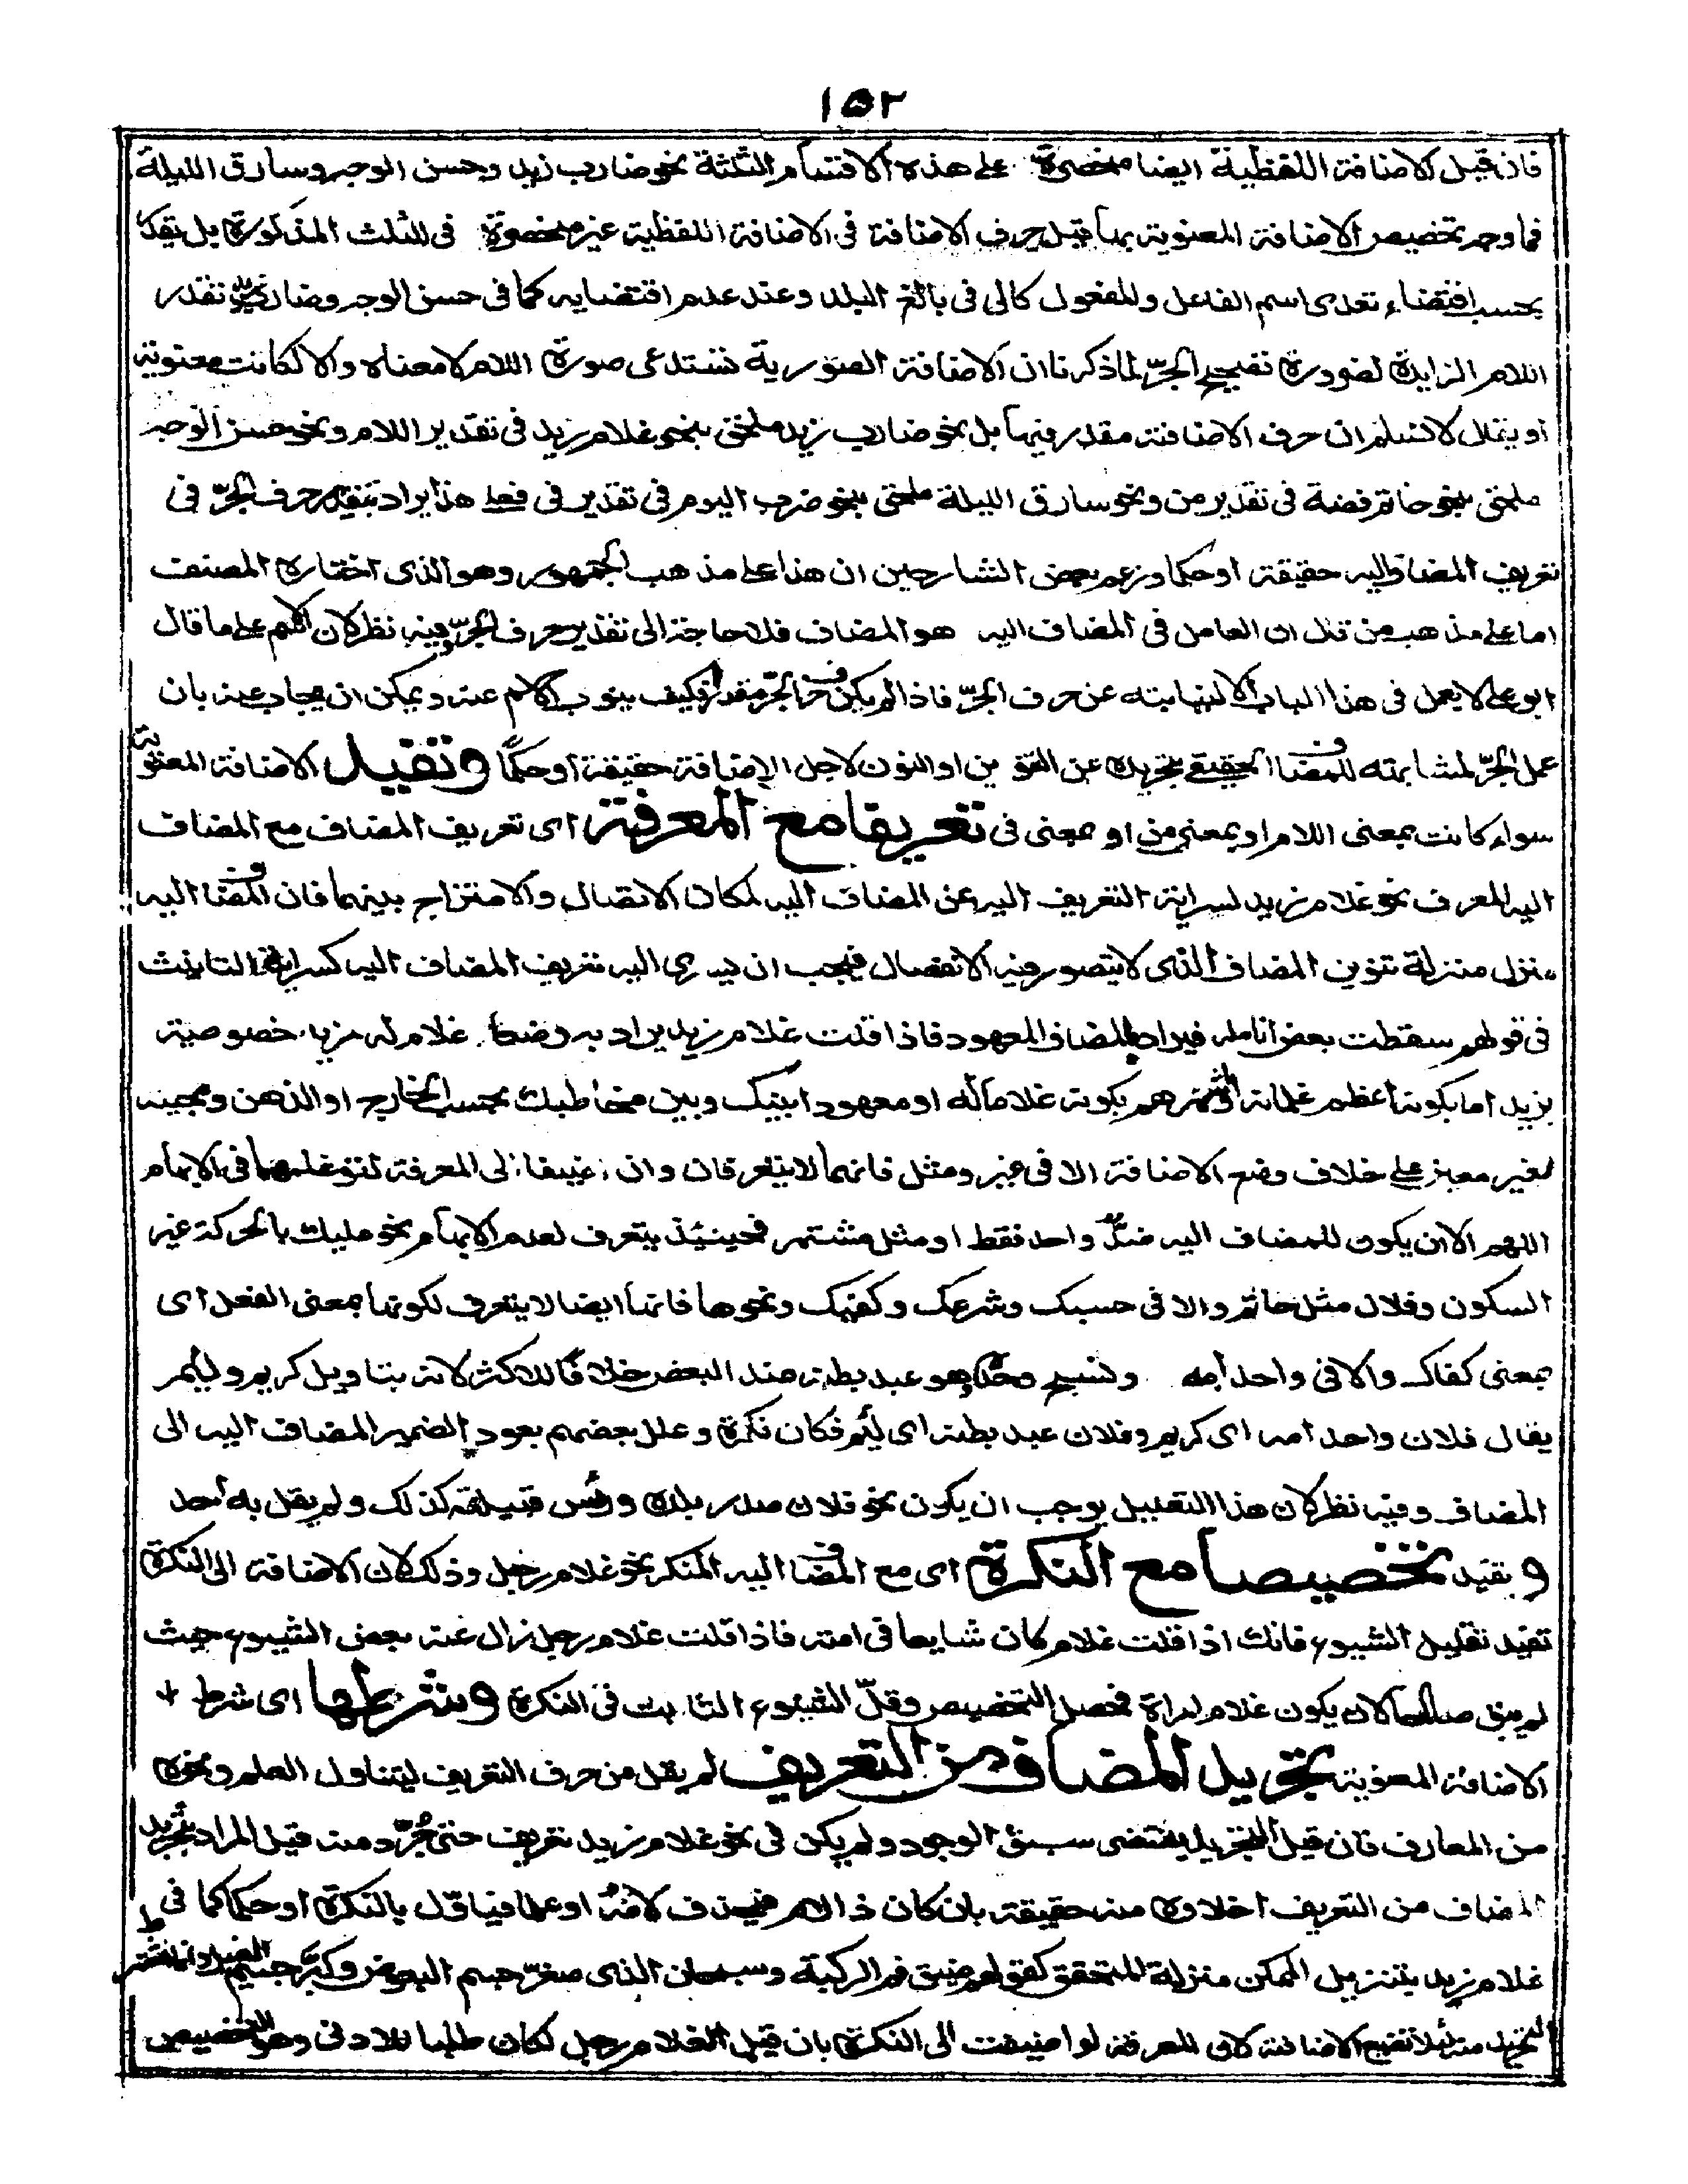 ١٥٢
فاذ قيل الاضافة اللفظية ايضا منحصرة على هذه الاقسام الثلثة نحو ضارب زيد وحسن الوجه وسارق الليلة
فما وجه تخصيص الاضافة المعنوية بها قيل حرف الاضافة فى الاضافة اللفظية غير منحصرة فى الثلث المذكورة بل يقدر
بحسب اقتضاء تعدى اسم الفاعل والمفعول كالى فى بالغ البلد وعند عدم اقتضايه كما فى حسن الوجه وضارب زيد تقدر
اللام الزايدة لضرورة تصحيح الجرّ لما ذكرنا ان الاضافة الصورية تستدعى صورة اللام لا معناه والا لكانت معنوية
او يقال لا نسلم ان حرف الاضافة مقدر فيها بل نحو ضارب زيد ملحق بنحو غلام زيد فى تقدير اللام ونحو حسن الوجه
ملحق بنحو خاتم فضة فى تقدير من ونحو سارق الليلة ملحق بنحو ضرب اليوم فى تقدير فى فعلى هذا يراد بتقدير حرف الجرّ فى
تعريف المضاف اليه حقيقة او حكما وزعم بعض الشارحين ان هذا على مذهب الجمهور وهو الذى اختاره المصنف
اما على مذهب من قال ان العامل فى المضاف اليه هو المضاف فلا حاجة الى تقدير حرف الجرّ وفيه نظر لان الاسم على ما قال
ابو على لا يعمل فى هذا الباب الا لنيابته عن حرف الجرّ فاذا لم يكن حرف الجرّ مقدرا فكيف ينوب الاسم عنه ويمكن ان يجاب عنه بان
عمل الجرّ لمشابهته للمضاف الحقيقى بتجريده عن التنوين او النون لاجل الاضافة حقيقة او حكمًا وتفيد الاضافة المعنوية
سواء كانت بمعنى اللام او بمعنى من او بمعنى فى تعريفا مع المعرفة اى تعريف المضاف مع المضاف
اليه المعرف نحو غلام زيد لسراية التعريف اليه عن المضاف اليه لمكان الاتصال والامتزاج بينهما فان المضاف اليه
نزل منزلة تنوين المضاف الذى لا يتصور فيه الانفصال فيجب ان يسرى اليه تعريف المضاف اليه كسراية التانيث
فى قولهم سقطت بعض انامله فيراد بالمضاف المعهود فاذا قلت غلام زيد يراد به وضعا غلام له مزيد خصوصية
بزيد اما بكونه اعظم غلمانه او اشهرهم بكونه غلاما له او معهودا بينك وبين مخاطبك بحسب الخارج او الذهن ومجيئه
لغير معين على خلاف وضع الاضافة الا فى غير ومثل فانهما لا يتعرفان وان اضيفا الى المعرفة لتوغلهما فى الابهام
اللهم الا ان يكون للمضاف اليه ضدّ واحد فقط او مثل مشتهر فحينئذ يتعرف لعدم الابهام نحو عليك بالحركة غير
السكون وفلان مثل حاتم والا فى حسبك وشرعك وكفيك ونحوها فانها ايضا لا يتعرف لكونها بمعنى الفعل اى
بمعنى كفاك والا فى واحد امه ونسيج وحده وهو عبد بطنه عند البعض خلافًا للاكثر لانه بتاويل كريم ولئيم
يقال فلان واحد امه اى كريم وفلان عبد بطنه اى لئيم فكان نكرة وعلل بعضهم بعود الضمير المضاف اليه الى
المضاف وفيه نظر لان هذا التعليل يوجب ان يكون نحو فلان صدر بلده ورئيس قبيلته كذلك ولم يقل به احد
و يفيد تخصيصا مع النكرة اى مع المضاف اليه المنكر نحو غلام رجل وذلك لان الاضافة الى النكرة
تفيد تقليل الشيوع فانك اذا قلت غلام كان شايعا فى امته فاذا قلت غلام رجل زال عنه بعض الشيوع حيث
لم يبق صالحا لان يكون غلام امراة فحصل التخصيص وقلّ الشيوع الثابت فى النكرة وشرطها اى شرط
الاضافة المعنوية تجريد المضاف من التعريف لم يقل من حرف التعريف ليتناول العلم ونحوه
من المعارف فان قيل التجريد يقتضى سبق الوجود ولم يكن فى نحو غلام زيد تعريف حتى جُرّد منه قيل المراد بتجريد
المضاف من التعريف اخلاؤه منه حقيقة بان كان ذا اللام فيحذف لامه او علما فياوّل بالنكرة او حكما كما فى
غلام زيد بتنزيل الممكن منزلة المتحقق كقولهم ضيق فم الركية وسبحان الذى صغّر جسم البعوض وكبّر جسم الفيل وانما اشترط
التجريد منه لئلا تضيع الاضافة لان المعرفة لو اضيفت الى النكرة بان قيل الغلام رجل لكان طلبا للادنى وهو التخصيص